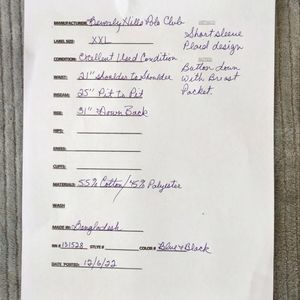 MANUFACTURER: Beverly Hills Polo Club
LABEL SIZE: XXL
CONDITION: Excellent Used Condition
WAIST: 21" Shoulder to Shoulder
INSEAM: 25" Pit to Pit
RISE: 31" Down Back
HIPS:
KNEES:
CUFFS:
MATERIALS: 55% Cotton/45% Polyester
WASH
MADE IN: Bangladesh
RN # 131528 STYLE # COLOR # Blue & Black
DATE POSTED: 12/6/22
Short sleeve
Plaid design
NOTES:
Button down
With Breast
Pocket